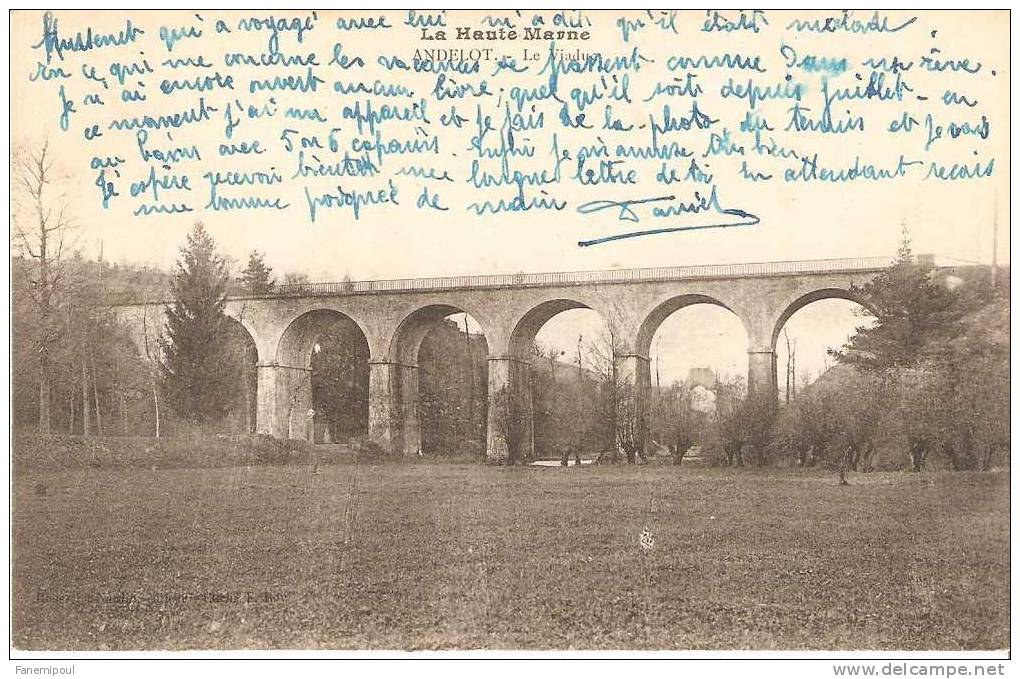 qui a voyagé avec lui m'a dit qu'il était malade.
La Haute Marne
ANDELOT. - Le Viaduc
En ce qui me concerne les vacances se passent comme dans un rêve.
Je n'ai encore ouvert aucun livre, quel qu'il soit depuis Juillet - en
ce moment j'ai mon appareil et je fais de la photo, du tennis et je vais
au bain avec 5 ou 6 copains. Enfin je m'amuse très bien.
J'espère recevoir bientôt une longue lettre de toi En attendant reçois
une bonne poignée de main Daniel
Fanemipoul
www.delcampe.net